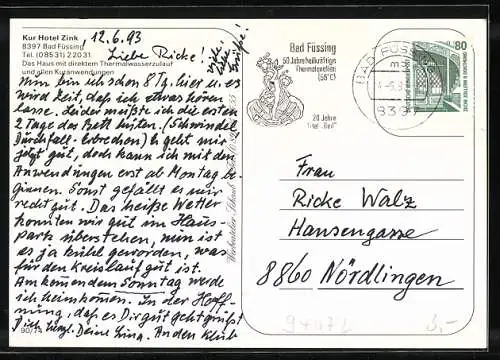 Kur Hotel Zink
8397 Bad Füssing
Tel. (08531) 22031
Das Haus mit direktem Thermalwasserzulauf
und allen Kuranwendungen
12.6.93
Liebe Ricke!
viele
liebe
Grüße!
Nun bin ich schon 8 Tg. hier u. es
wird Zeit, daß ich etwas hören
lasse. Leider mußte ich die ersten
2 Tage das Bett hüten. (Schwindel
Durchfall-Erbrechen) Es geht mir
jetzt gut, doch kann ich mit den
Anwendungen erst ab Montag be-
ginnen. Sonst gefällt es mir
recht gut. Das heiße Wetter
konnten wir gut im Haus-
park überstehen, nun ist
es ja kühl geworden, was
für den Kreislauf gut ist.
Am kommenden Sonntag werde
ich heimkommen. In der Hoff-
nung, daß es Dir gut geht grüßt
Dich Deine An den Klub
90/14
Bad Füssing
50 Jahre heilkräftiges
Thermalquellen
(56°C)
20 Jahre
BAD FÜSSING
8397
80
Frau
Ricke Walz
Hansengasse
8860 Nördlingen
3,-